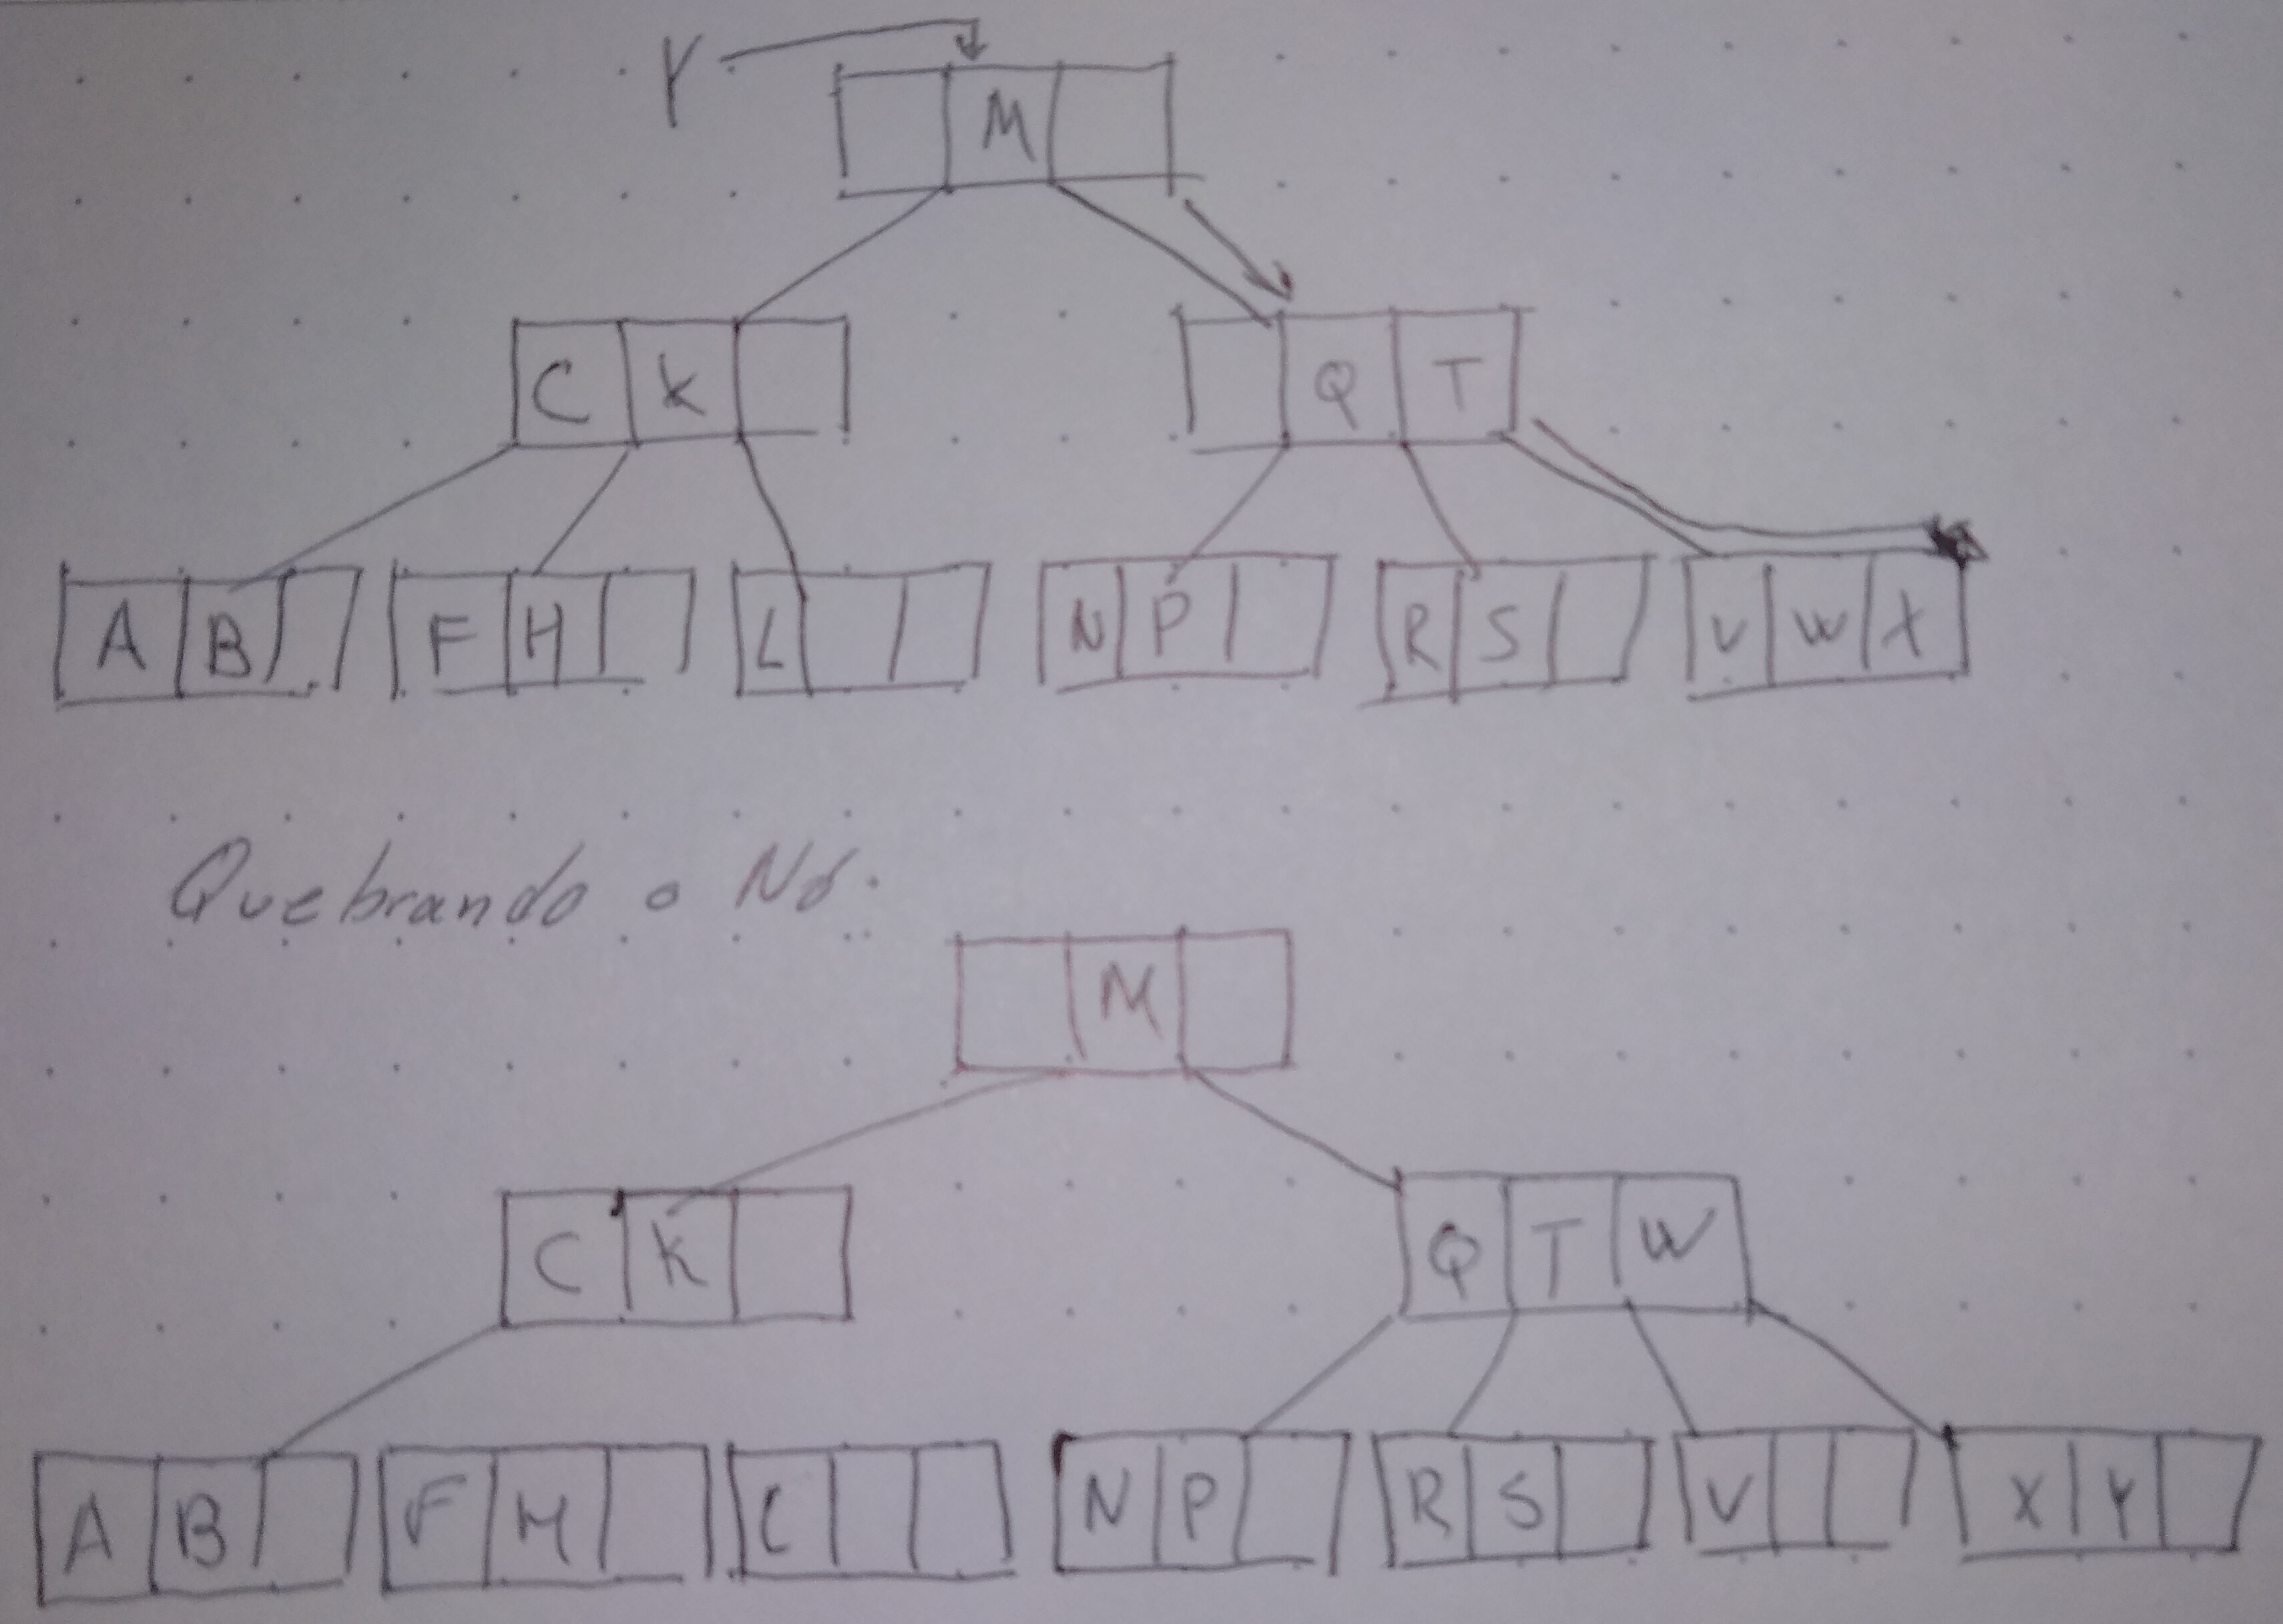 Y
M
C K Q T
A B F H L N P R S V W X
Quebrando o Nó.
M
C K Q T W
A B F H L N P R S V X Y